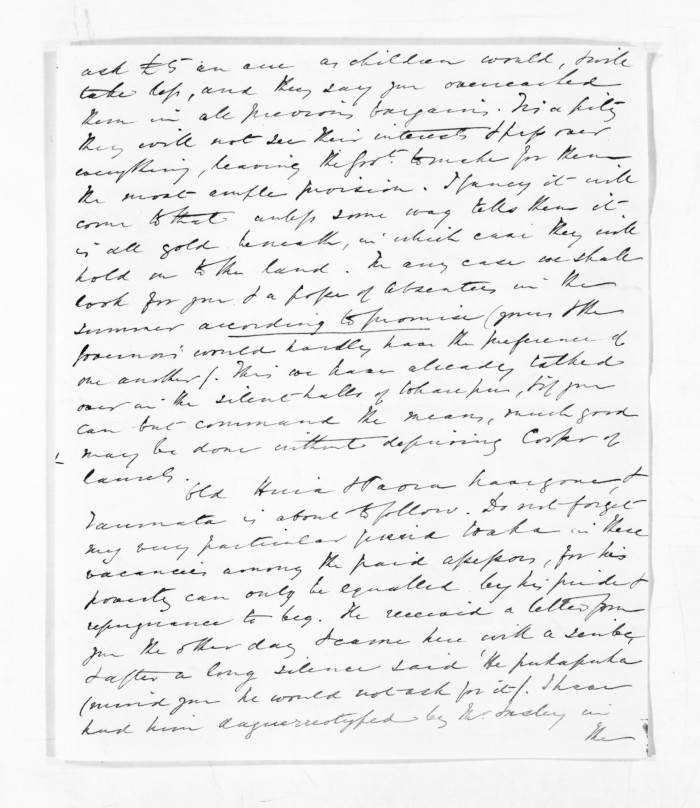 ask £5 an acre as children would, & will
take less, and they say you overreached
them in all previous bargains. Tis a pity
they will not see their interests & pass over
everything, leaving the Govt. to make for them
the most ample provision. I fancy it will
come to that unless some wag tells them it
is all gold beneath, in which case they will
hold on to the land. In any case we shall
look for you & a posse of Absentees in the
summer according to promise (yours & the
Governors would hardly have the preference of
one another). This we have already talked
over in the silent halls of & if you
can but command the means, much good
may be done without depriving Cooper of
laurels.
Old Huia & Paora have gone, &
Taumata is about to follow. Do not forget
my very particular friend Waka in these
vacancies among the paid assessors, for his
poverty can only be equalled by his pride &
repugnance to beg. He received a letter from
you the other day & came here with a scribe,
& after a long silence said 'He pukapuka
(mind you he would not ask for it). I have
had him daguerreotyped by Mr. in
the